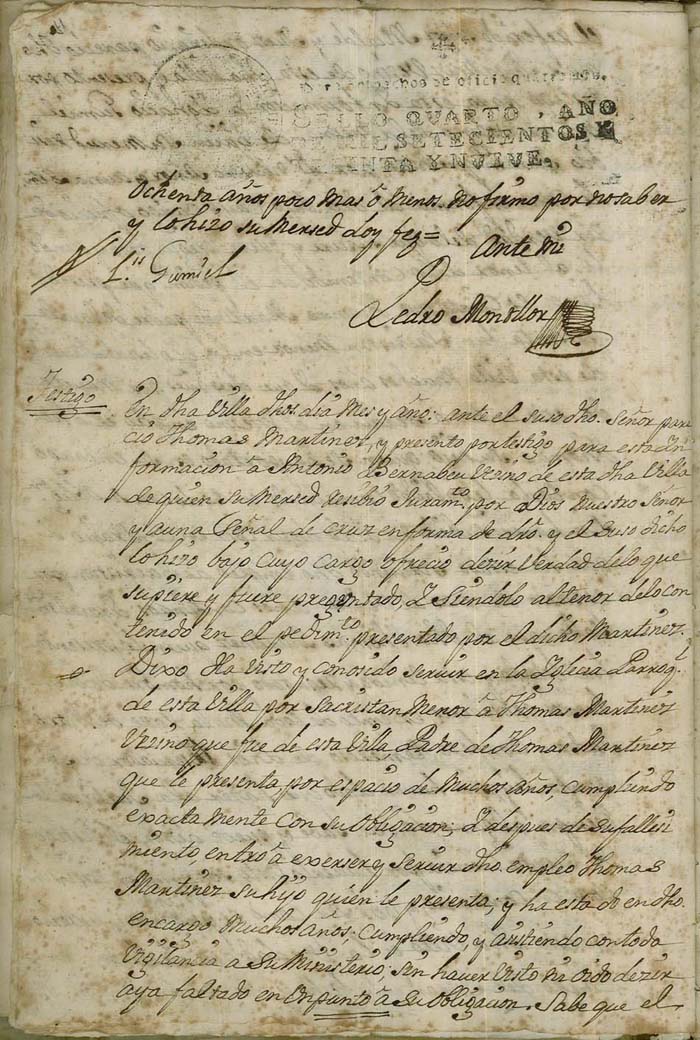 Para despachos de oficio quatro mrs.
SELLO QVARTO, AÑO
MIL SETECIENTOS Y
TREINTA Y NVEVE.
Ochenta años poco mas ô menos. no firmo por no saber
y lo hizo su Mersed doy fee=
Ante mi
L.ii Gumiel
Pedro Monllor
Testigo
En dha Villa dhos. dia Mes y año: ante el suso dho. Señor pare
cio Thomas Martinez, y presento por testigo para esta Yn
formacion â Antonio Bernabeu Vezino de esta dha Villa
de quien su Mersed resibio Juram.to por Dios Nuestro Señor
y a una Señal de Cruz en forma de dro. y el suso dicho
lo hizo bajo cuyo cargo ofrecio dezir Verdad de lo que
supiere y fuere preguntado, Y siendolo al tenor de lo con
tenido en el pedim.to presentado por el dicho Martinez.
Dixo Ha visto y conosido servir en la Yglecia Parroq.l
de esta Villa por Sacristan Menor â Thomas Martinez
Vezino que fue de esta Villa, Padre de Thomas Martinez
que le presenta, por espacio de Muchos años, cumpliendo
exacta Mente con su obligacion; Y despues de su fallesi
miento, entro â exerser y servir dho. empleo Thomas
Martinez su hijo quien le presenta; y ha estado en dho.
encargo Muchos años; Cumpliendo, y asistiendo con toda
Vigilancia a Su Ministerio, sin haver Visto ni oido dezir
aya faltado en Un punto â Su obligacion. Sabe que el